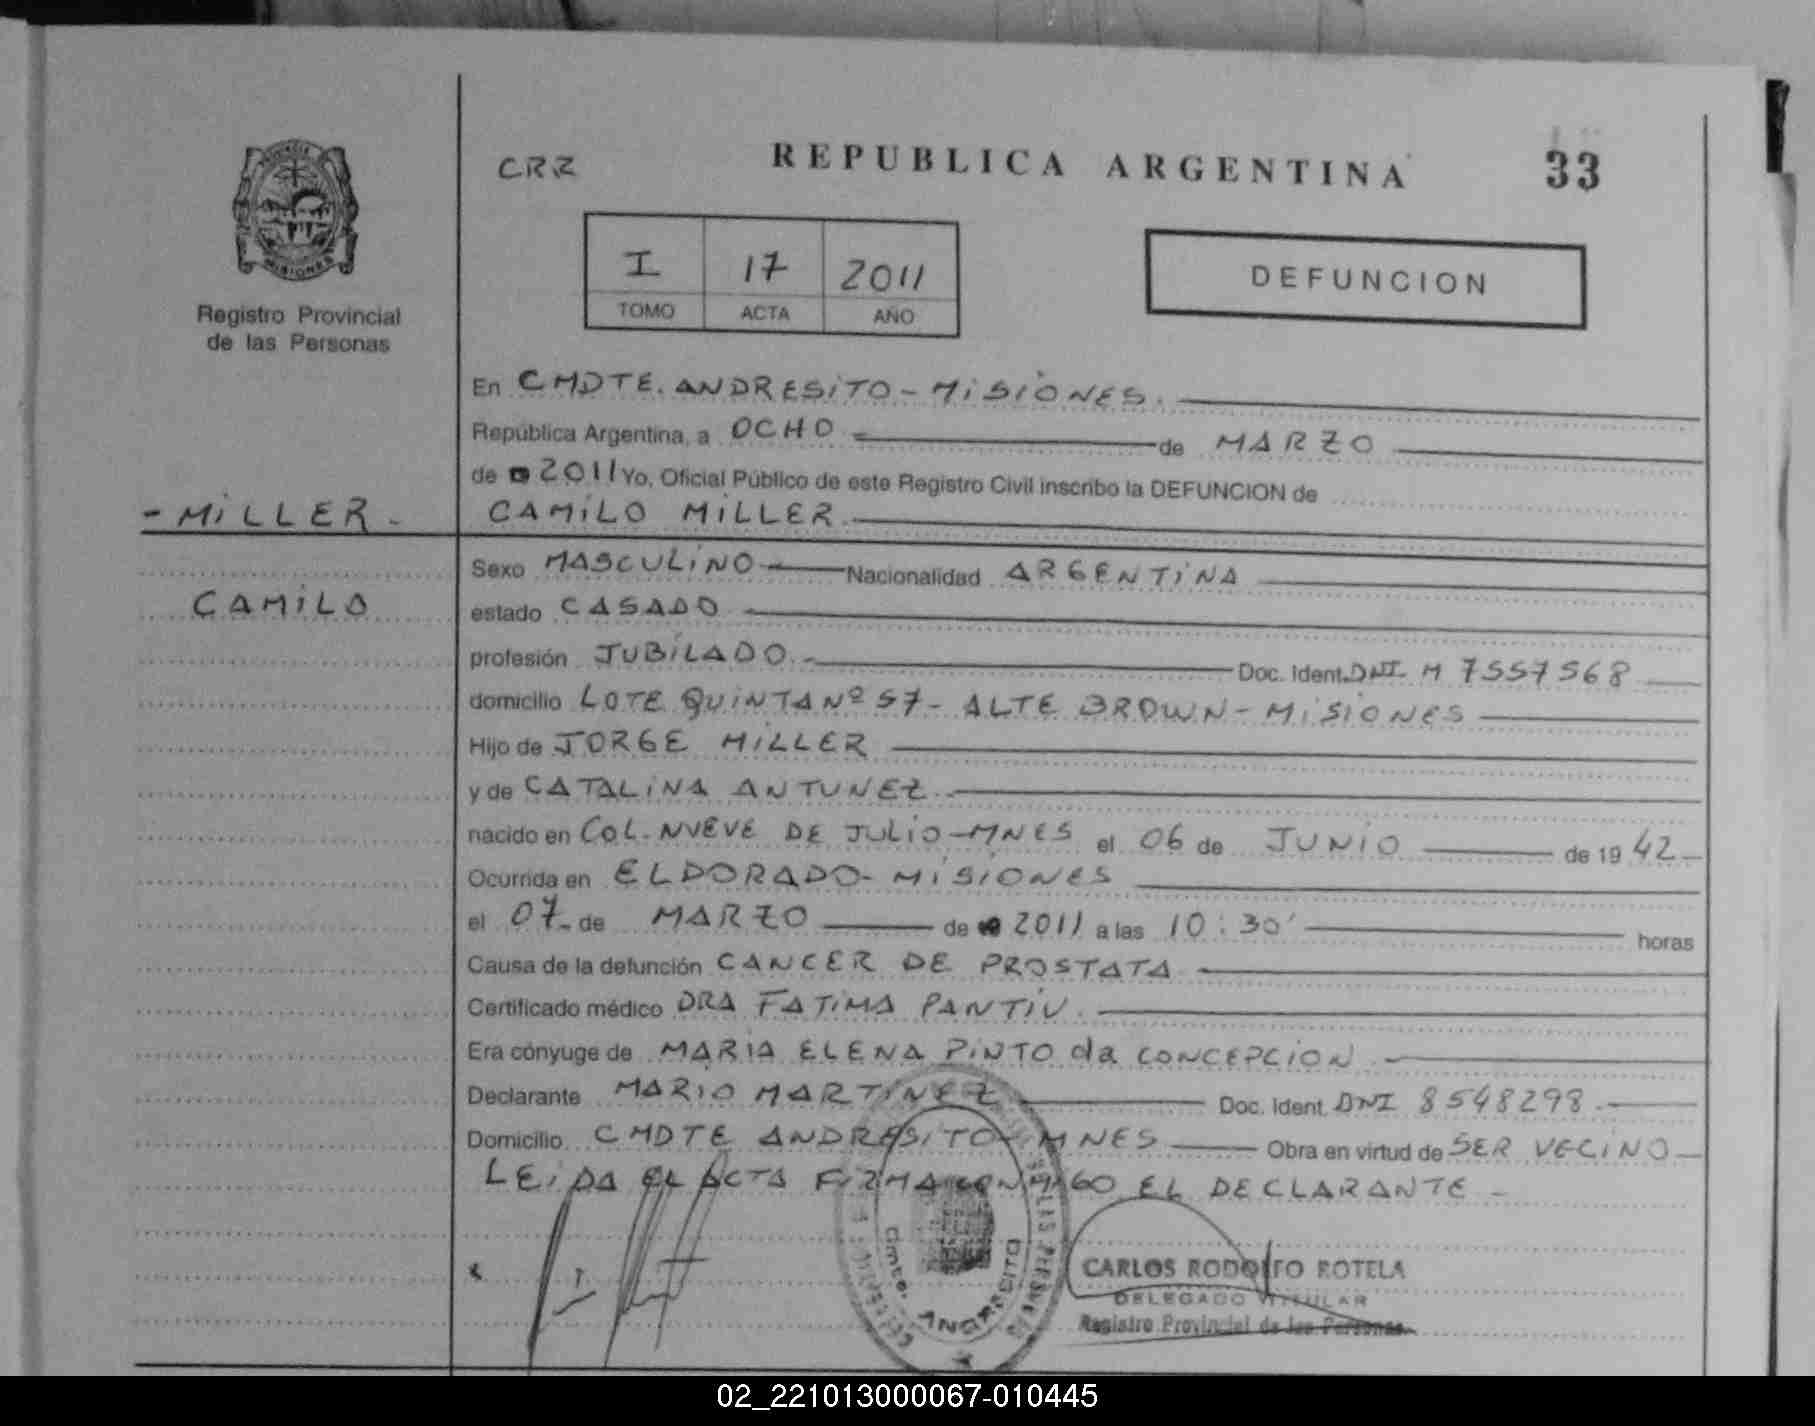 CRR
REPUBLICA ARGENTINA
33
PROVINCIA
MISIONES
Registro Provincial
de las Personas
I 17 2011
TOMO ACTA AÑO
DEFUNCION
En CMDTE. ANDRESITO - MISIONES.
República Argentina, a OCHO de MARZO
de 2011 Yo, Oficial Público de este Registro Civil inscribo la DEFUNCION de
- MILLER -
CAMILO MILLER
CAMILO
Sexo MASCULINO Nacionalidad ARGENTINA
estado CASADO
profesión JUBILADO.- Doc. Ident. DNI M 7557568
domicilio LOTE QUINTA Nº 57 - ALTE BROWN - MISIONES
Hijo de JORGE MILLER
y de CATALINA ANTUNEZ
nacido en COL. NUEVE DE JULIO - MNES el 06 de JUNIO de 19 42
Ocurrida en ELDORADO - MISIONES
el 07 de MARZO de 2011 a las 10:30' horas
Causa de la defunción CANCER DE PROSTATA
Certificado médico DRA FATIMA PANTIU.
Era cónyuge de MARIA ELENA PINTO da CONCEPCION
Declarante MARIO MARTINEZ Doc. Ident. DNI 8548298
Domicilio CMDTE ANDRESITO - MNES Obra en virtud de SER VECINO
LEIDA EL ACTA FIRMA CONMIGO EL DECLARANTE -
Cmte. ANDRESITO
CARLOS RODOLFO ROTELA
DELEGADO TITULAR
Registro Provincial de las Personas
02_221013000067-010445